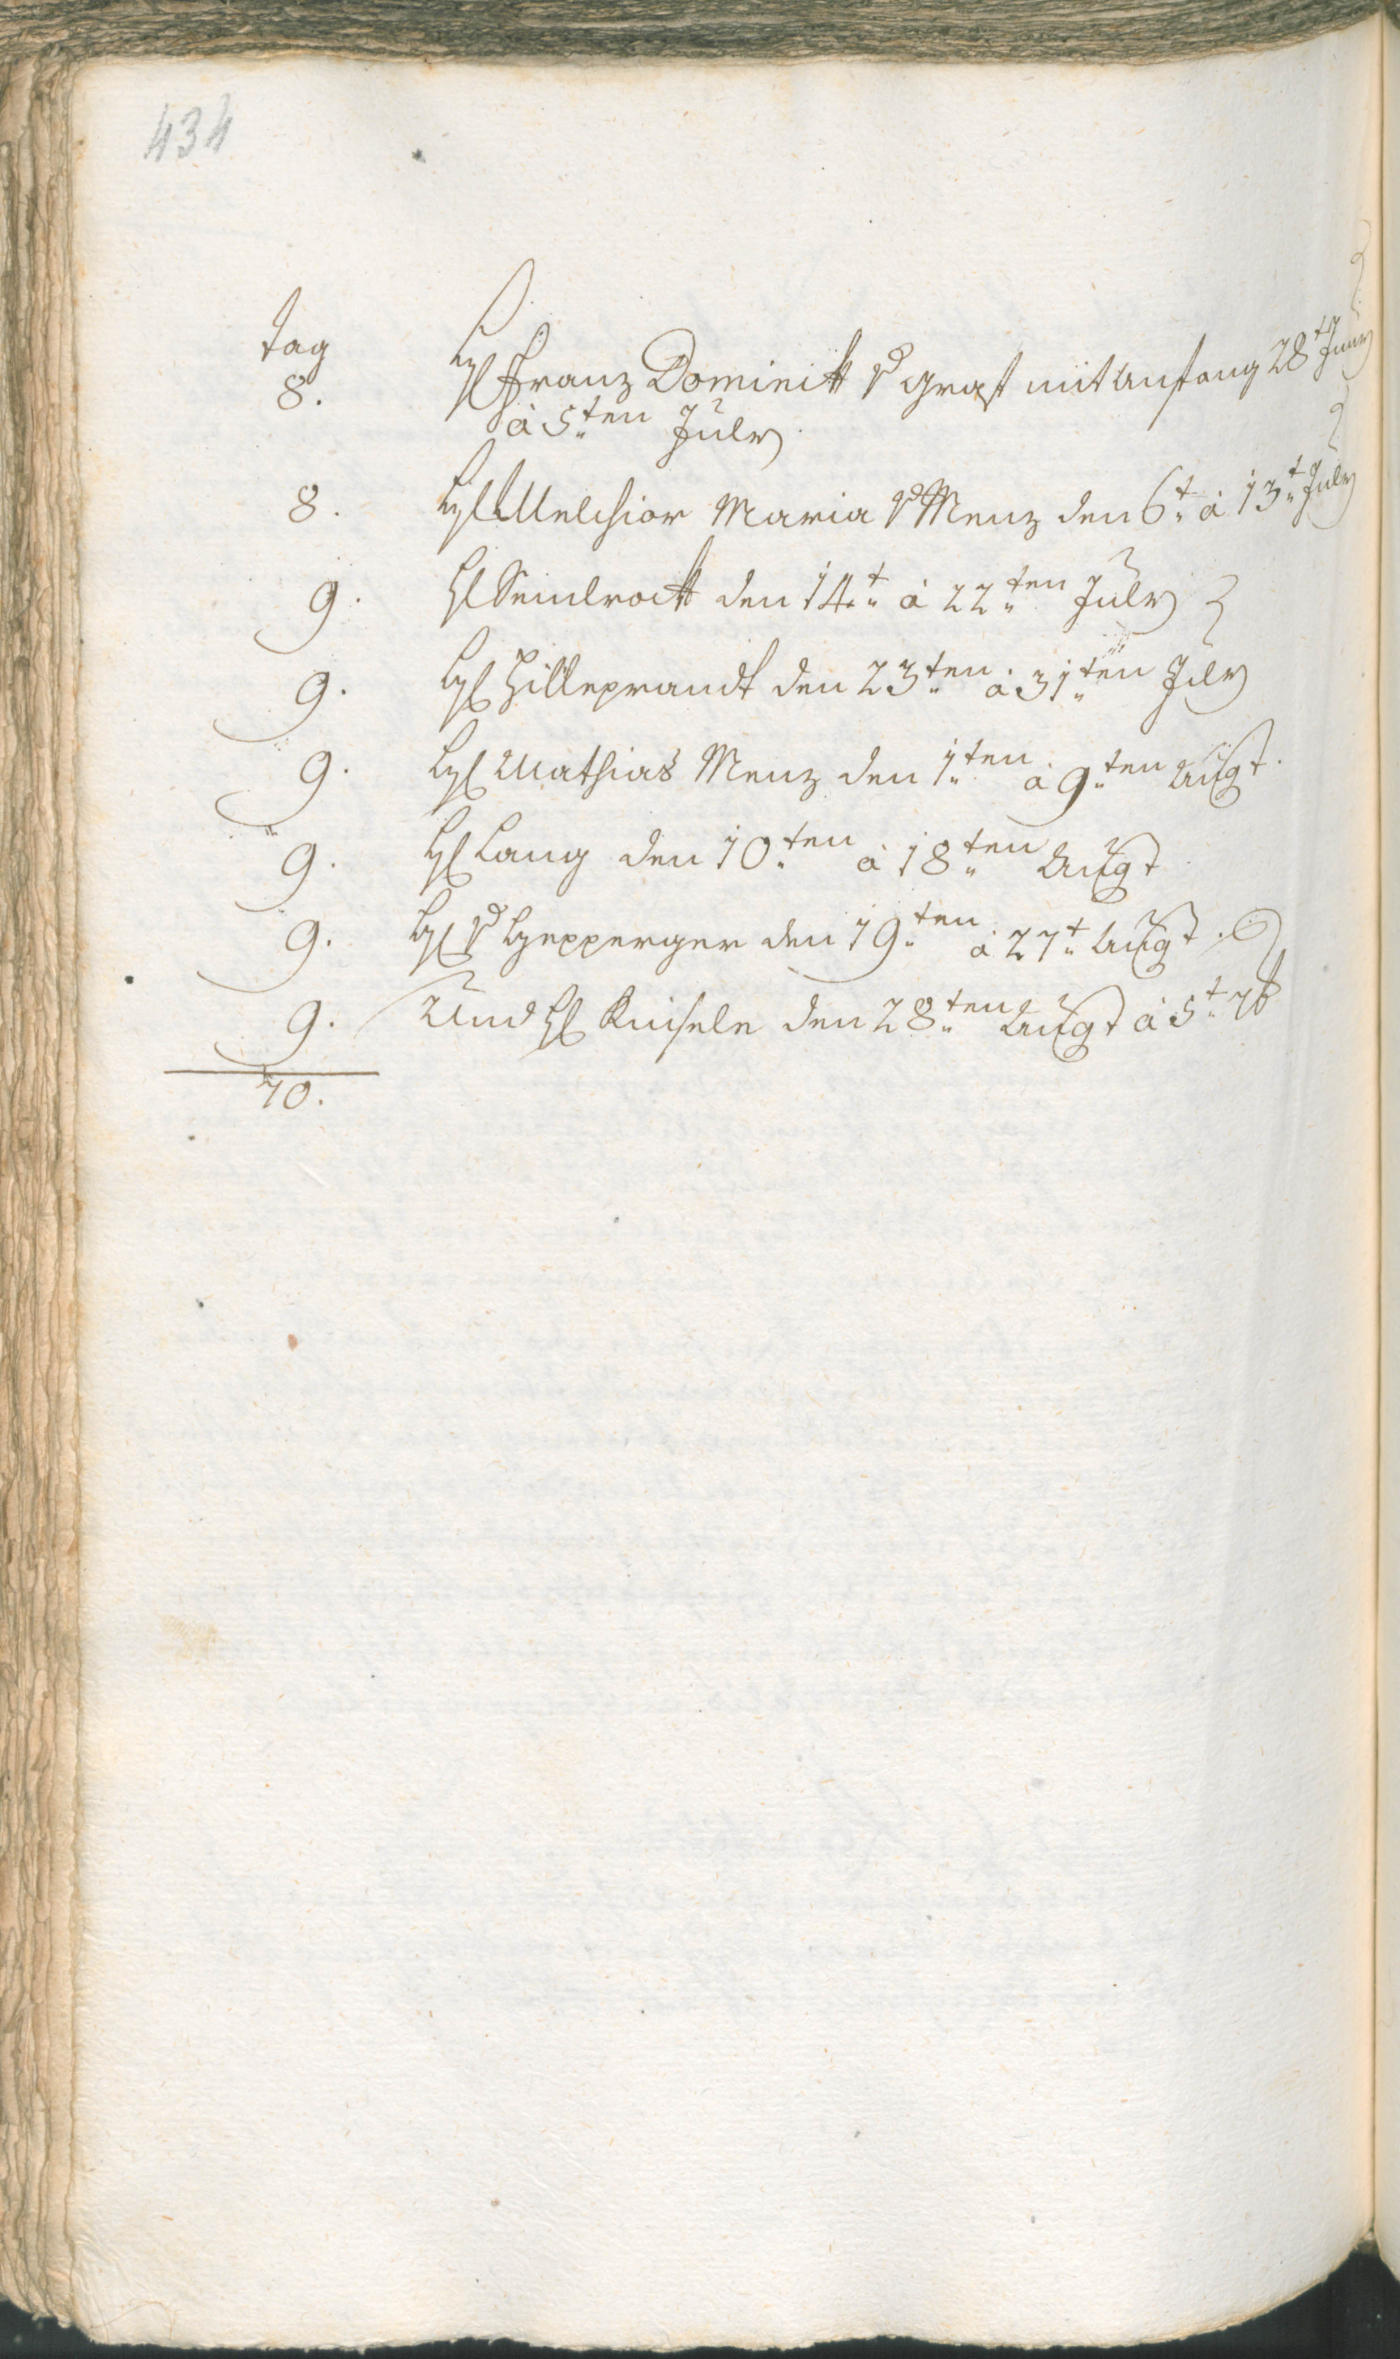 434
Tag
8. H: Franz Dominik v: Graff mit Anfang 28t Juny
à 5.ten July.
8. H: Melchior Maria v: Menz den 6.t à 13.t July
9. H: den 14.t à 22.ten July
9. H: Hilleprandt den 23.ten à 31.ten July
9. H: Mathias Menz den 1.ten à 9.ten Augt.
9. H: Lang den 10.ten à 18.ten Augt
9. H: v: Hepperger den 19.ten à 27.t Augt.
9. Und H: Kniseln den 28.ten Augt à 5.t 7b
70.